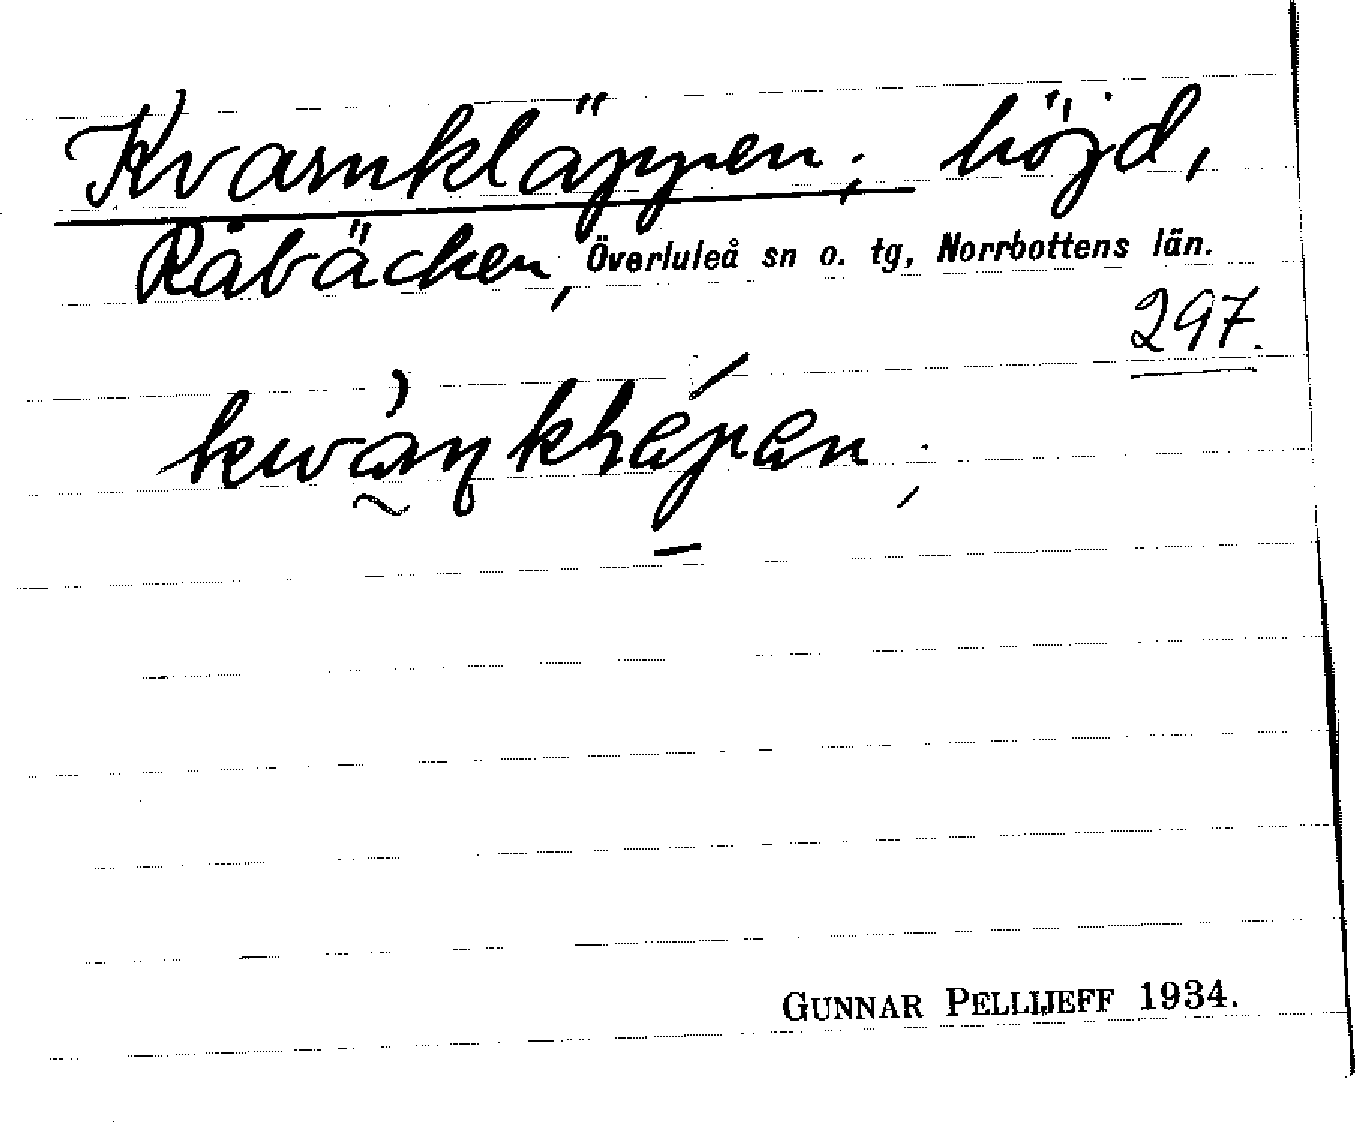 Kvarnkläppen; höjd,
Råbäcken, Överluleå sn o. tg, Norrbottens län.
297.
GUNNAR PELLIJEFF 1934.